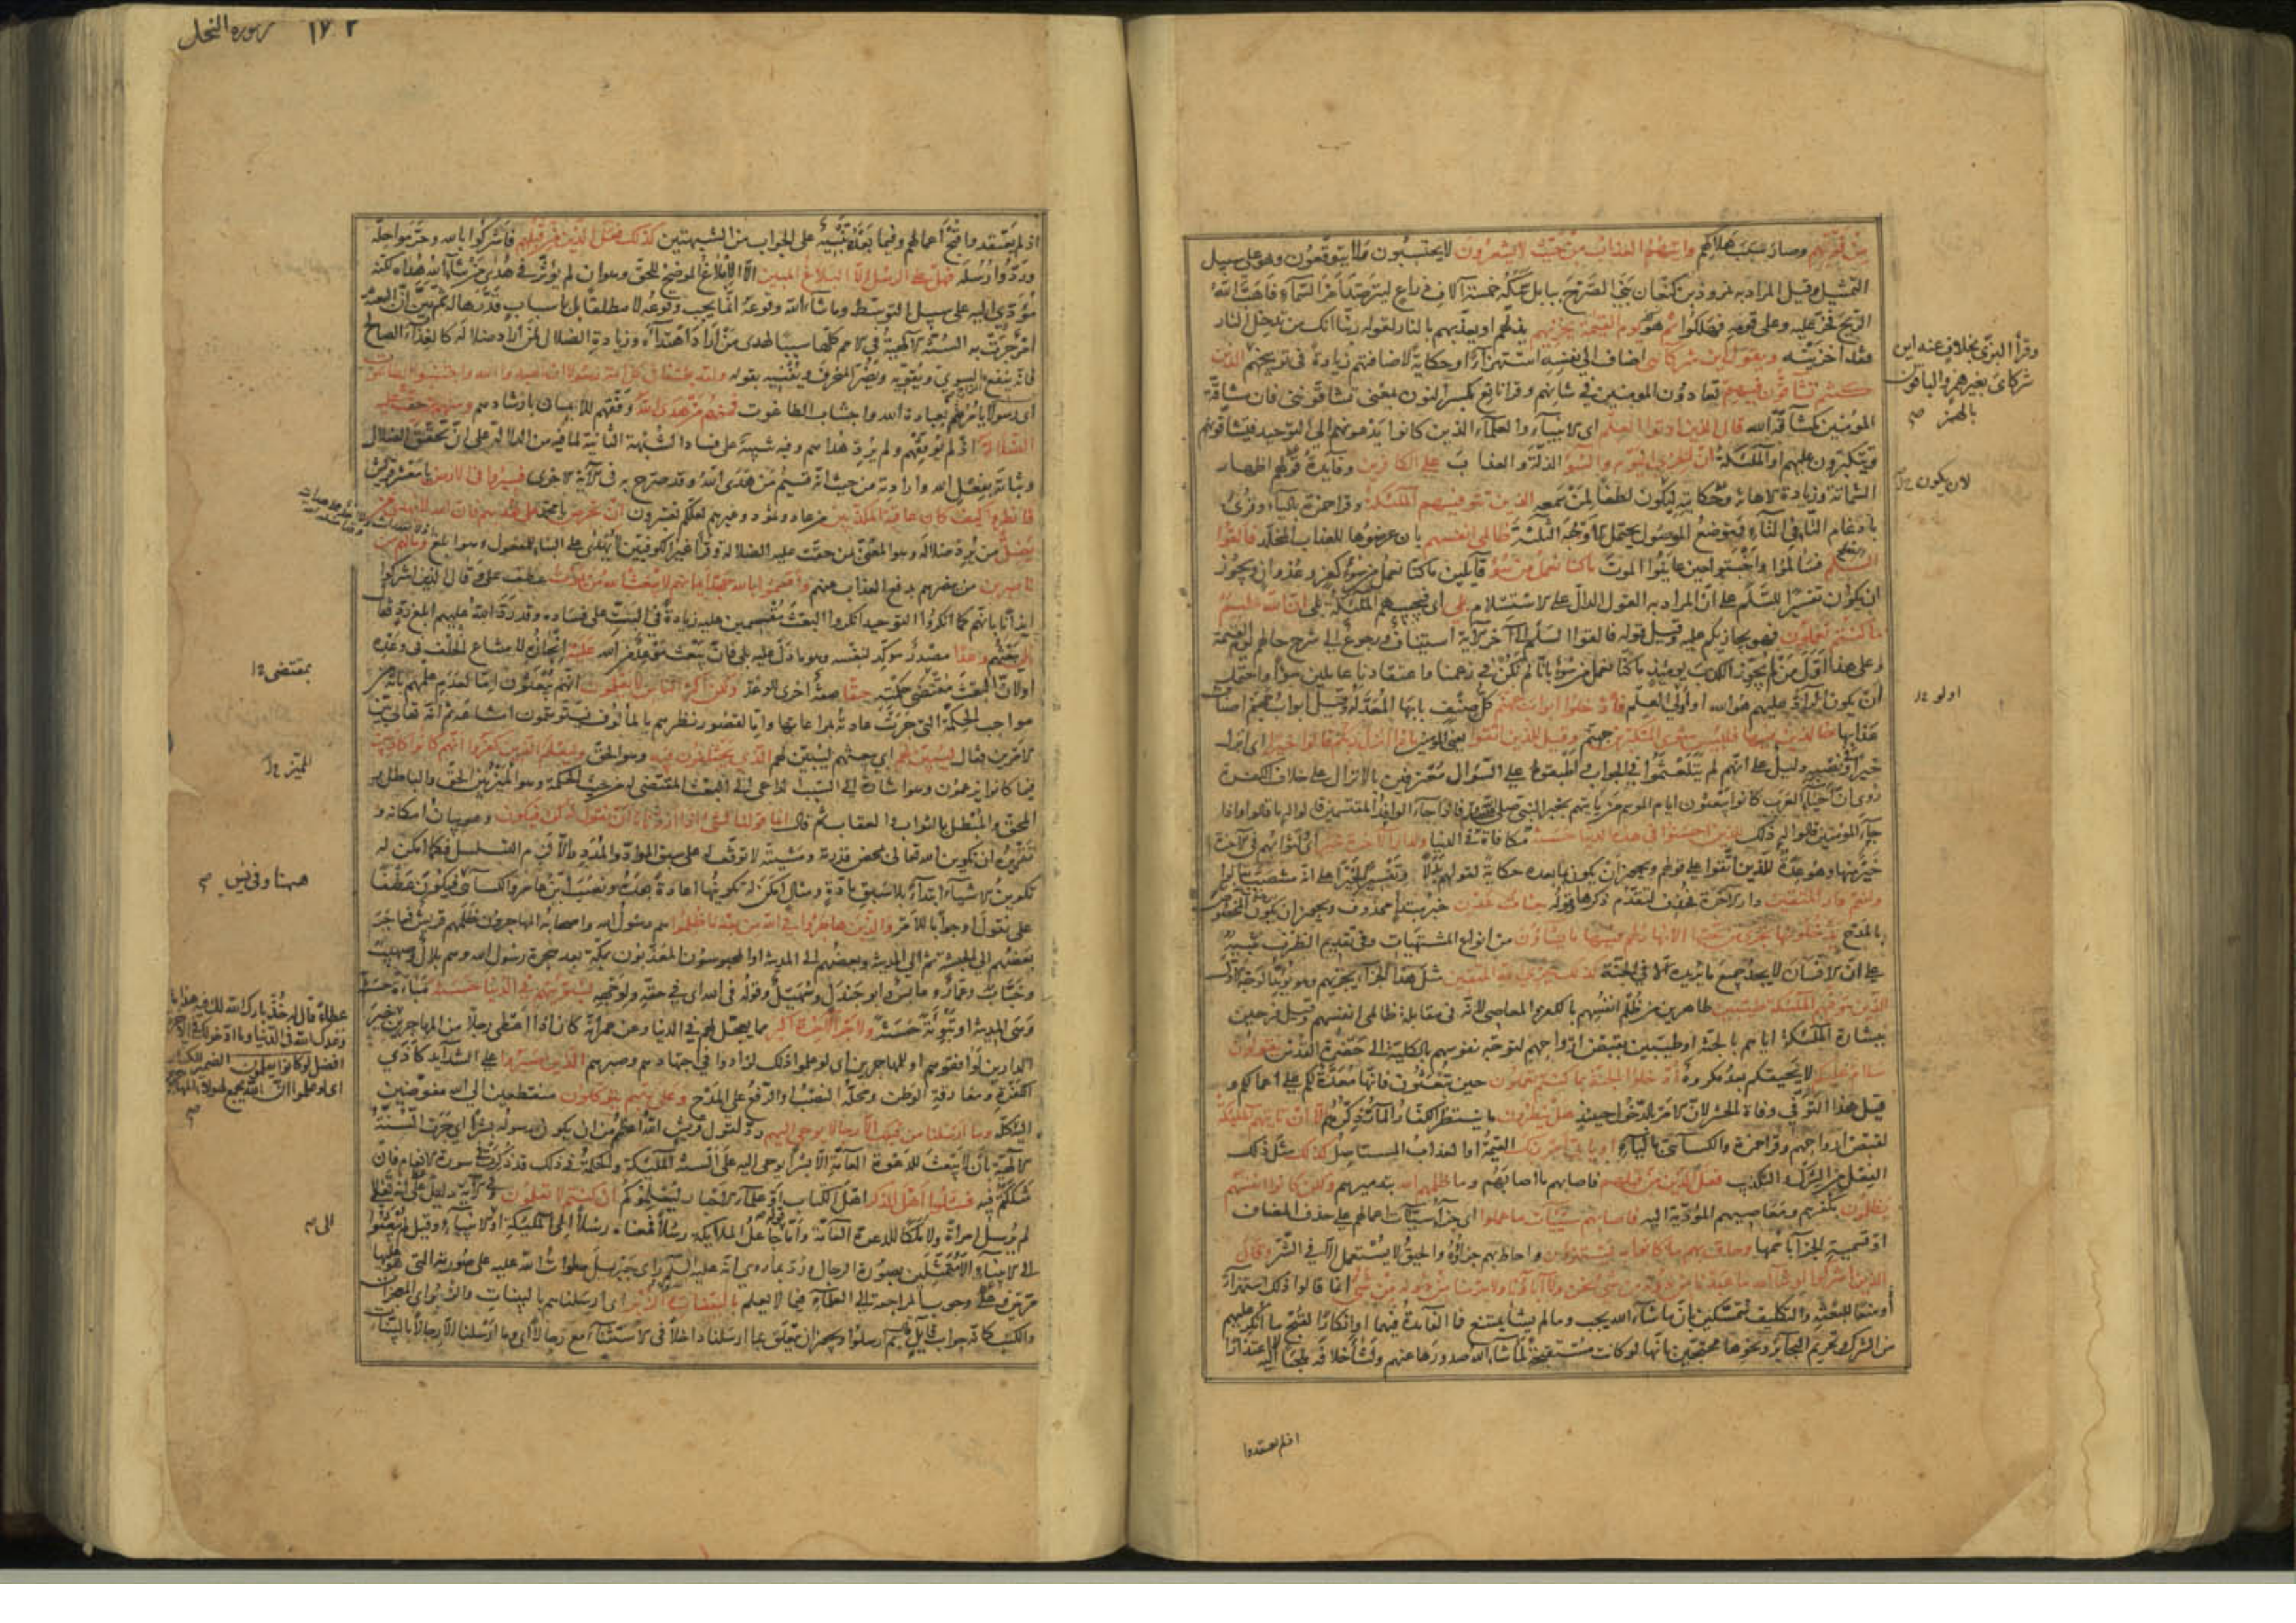 من فوقهم وصار سبب هلاكهم واتيهم العذاب من حيث لا يشعرون لا يحتسبون ولا يتوقعون وهو على سبيل
التمثيل وقيل المراد به نمرود بن كنعان بنى الصرح ببابل سمكه خمسة آلاف ذراع ليترصد امر السماء فاهب الله
الريح فخر عليه وعلى قومه فهلكوا ثم يوم القيمة يخزيهم يذلهم او يعذبهم بالنار لقوله ربنا انك من تدخل النار
فقد اخزيته ويقول اين شركائى اضاف الى نفسه استهزاء او حكاية لاضافتهم زيادة فى توبيخهم الذين
كنتم تشاقون فيهم تعادون المؤمنين فى شانهم وقرا نافع بكسر النون بمعنى تشاقوننى فان مشاقة
المؤمنين كمشاقة الله قال الذين اوتوا العلم اى الانبياء والعلماء الذين كانوا يدعونهم الى التوحيد فيشاقونهم
ويتكبرون عليهم او الملئكة ان الخزى اليوم والسوء الذلة والعذاب على الكافرين وفايدة قولهم اظهار
الشماتة وزيادة الاهانة وحكايته ليكون لطفا لمن سمعه الذين تتوفيهم الملئكة وقرا حمزة بالياء وقرئ
بادغام التاء فى التاء وموضع الموصول يحتمل الاوجه الثلثة ظالمى انفسهم بان عرضوها للعذاب المخلد فالقوا
السلم فسالموا واخبتوا حين عاينوا الموت ما كنا نعمل من سوء قايلين ما كنا نعمل من سوء كفر وعدوان ويجوز
ان يكون تفسيرا للسلم على ان المراد به القول الدال على الاستسلام بلى اى فتجيبهم الملئكة بلى ان الله عليم
بما كنتم تعملون فهو يجازيكم عليه وقيل قوله فالقوا السلم الى آخر الآية استيناف ورجوع الى شرح حالهم يوم القيمة
وعلى هذا اول من لم يجوز الكذب يومئذ ما كنا نعمل من سوء بانا لم نكن فى زعمنا واعتقادنا عاملين سوءا واحتمل
ان يكون الراد عليهم هو الله او اولى العلم فادخلوا ابواب جهنم كل صنف بابها المعد له وقيل ابواب جهنم اصناف
عذابها خالدين فيها فلبئس مثوى المتكبرين جهنم وقيل للذين اتقوا يعنى المؤمنين ماذا انزل ربكم قالوا خيرا اى انزل
خيرا ونصبه دليل على انهم لم يتلعثموا فى الجواب واطبقوه على السؤال معترفين بالانزال على خلاف الكفرة
روى ان احياء العرب كانوا يبعثون ايام الموسم من ياتيهم بخبر النبى صلى الله عليه فاذا جاء الوافد المقتسمين قالوا له ما قالوا واذا
جاء المؤمنين قالوا له ذلك للذين احسنوا فى هذه الدنيا حسنة مكافاة فى الدنيا ولدار الآخرة خير اى لثوابهم فى الآخرة
خير منها وهو عدة للذين اتقوا على قولهم ويجوز ان يكون بما بعده حكاية لقولهم بدلا وتفسيرا لخيرا على انه منتصب بقالوا
ولنعم دار المتقين دار الآخرة فحذف لتقدم ذكرها وقوله جنات عدن خبر مبتدأ محذوف ويجوز ان يكون المخصوص
بالمدح يدخلونها تجرى من تحتها الانهار لهم فيها ما يشاؤن من انواع المشتهيات وفى تقديم الظرف تنبيه
على ان الانسان لا يجد جميع ما يريده الا فى الجنة كذلك يجزى الله المتقين مثل هذا الجزاء يجزيهم وهو يؤيد الوجه الاول
الذين تتوفيهم الملئكة طيبين طاهرين من ظلم انفسهم بالكفر والمعاصى لانه فى مقابلة ظالمى انفسهم وقيل فرحين
ببشارة الملئكة اياهم بالجنة او طيبين بقبض ارواحهم لتوجه نفوسهم بالكلية الى حضرة القدس يقولون
سلام عليكم لا يحيقكم بعد مكروه ادخلوا الجنة بما كنتم تعملون حين تبعثون فانها معدة لكم على اعمالكم و
قيل هذا التوفى وفاة الحشر لان الامر بالدخول حينئذ هل ينظرون ما ينتظر الكفار المار ذكرهم الا ان تاتيهم الملئكة
لقبض ارواحهم وقرا حمزة والكسائى بالياء او ياتى امر ربك القيمة او العذاب المستاصل كذلك مثل ذلك
الفعل من الشرك والتكذيب فعل الذين من قبلهم فاصابهم ما اصابهم وما ظلمهم الله بتدميرهم ولكن كانوا انفسهم
يظلمون بكفرهم ومعاصيهم المؤدية اليه فاصابهم سيئات ما عملوا اى جزاء سيئات اعمالهم على حذف المضاف
او تسمية الجزاء باسمها وحاق بهم ما كانوا به يستهزؤن واحاط بهم جزاؤه والحيق لا يستعمل الا فى الشر وقال
الذين اشركوا لو شاء الله ما عبدنا من دونه من شئ نحن ولا آباؤنا ولا حرمنا من دونه من شئ انما قالوا ذلك استهزاء
او منعا للبعثة والتكليف متمسكين بان ما شاء الله يجب وما لم يشأ يمتنع فما الفايدة فيهما او انكارا لقبح ما انكر عليهم
من الشرك وتحريم البحاير ونحوها محتجين بانها لو كانت مستقبحة لما شاء الله صدورها عنهم ولشاء خلافه ملجئا اليه لا اعتذارا
وقرأ البزى بخلاف عنه اين
شركاى بغير همز والباقون
بالهمز صح
لان يكون
اولو
اذ لم يعتقدوا
سورة النحل ١٧٢
اذ لم يعتقدوا قبح اعمالهم وفيما بعده تنبيه على الجواب من الشبهتين كذلك فعل الذين من قبلهم فاشركوا بالله وحرموا حله
وردوا رسله فهل على الرسل الا البلاغ المبين الا الابلاغ الموضح للحق وهو ان لم يؤثر فى هدى من شاء الله هداه لكنه
مؤدى اليه على سبيل التوسط وما شاء الله وقوعه انما يجب وقوعه لا مطلقا بل باسباب قدرها له ثم بين ان البعثة
امر جرت به السنة الالهية فى الامم كلها سببا لهدى من اراد اهتداءه وزيادة الضلال لمن اراد ضلاله كالغذاء الصالح
فانه ينفع المزاج السوى ويقويه ويضر المنحرف ويفنيه بقوله ولقد بعثنا فى كل امة رسولا ان اعبدوا الله واجتنبوا الطاغوت
اى رسولا يامرهم بعبادة الله واجتناب الطاغوت فمنهم من هدى الله وفقهم للايمان بارشادهم ومنهم من حقت عليه
الضلالة اذ لم يوفقهم ولم يرد هداهم وفيه تنبيه على فساد الشبهة الثانية لما فيه من الدلالة على ان تحقق الضلال
وثباته بفعل الله وارادته من حيث انه قسيم من هدى الله وقد صرح به فى الآية الاخرى فسيروا فى الارض يا معشر قريش
فانظروا كيف كان عاقبة المكذبين من عاد وثمود وغيرهم لعلكم تعتبرون ان تحرص يا محمد على هديهم فان الله لا يهدى من
يضل من يريد ضلاله وهو المعنى بمن حقت عليه الضلالة وقرا غير الكوفيين لا يهدى على البناء للمفعول وهو ابلغ وما لهم من
ناصرين من ينصرهم بدفع العذاب عنهم واقسموا بالله جهد ايمانهم لا يبعث الله من يموت عطف على وقال الذين اشركوا
ايذانا بانهم كما انكروا التوحيد انكروا البعث مقسمين عليه زيادة فى البت على فساده وقد رد الله عليهم ابلغ رد فقال
بلى يبعثهم وعدا مصدر مؤكد لنفسه وهو ما دل عليه بلى فان يبعث موعد من الله عليه انجازه لامتناع الخلف فى وعده
او لان البعث مقتضى حكمته حقا صفة اخرى للوعد ولكن اكثر الناس لا يعلمون انهم يبعثون اما لعدم علمهم بانه من
مواجب الحكمة التى جرت عادته بمراعاتها واما لقصور نظرهم بالمألوف فيتوهمون امتناعه ثم انه تعالى بين
الامرين فقال ليبين لهم اى يبعثهم ليبين لهم الذى يختلفون فيه وهو الحق وليعلم الذين كفروا انهم كانوا كاذبين
فيما كانوا يزعمون وهو اشارة الى السبب الداعى الى البعث المقتضى له من حيث الحكمة وهو الميز بين الحق والباطل و
المحق والمبطل بالثواب والعقاب ثم قال انما قولنا لشئ اذا اردناه ان نقول له كن فيكون وهو بيان امكانه و
تقريره ان تكوين الله تعالى بمحض قدرته ومشيته لا توقف له على سبق المواد والمدد والا لزم التسلسل فكما امكن له
تكوين الاشياء ابتداء بلا سبق مادة ومثال امكن له تكوينها اعادة بعده ونصب ابن عامر والكسائى فيكون عطفا
على نقول او جوابا للامر والذين هاجروا فى الله من بعد ما ظلموا هم رسول الله واصحابه المهاجرون ظلمهم قريش فهاجر
بعضهم الى الحبشة ثم الى المدينة وبعضهم الى المدينة او المحبوسون المعذبون بمكة بعد هجرة رسول الله وهم بلال وصهيب
وخباب وعمار وعابس وابو جندل وسهيل وقوله فى الله اى فى حقه ولوجهه لنبوئنهم فى الدنيا حسنة مباءة حسنة
وهى المدينة او تبوئة حسنة ولاجر الآخرة اكبر مما يعجل لهم فى الدنيا وعن عمر انه كان اذا اعطى رجلا من المهاجرين خير
الدارين لوافقوهم او للمهاجرين اى لو علموا ذلك لزادوا فى اجتهادهم وصبرهم الذين صبروا على الشدايد كاذى
الكفرة ومفارقة الوطن ومحله النصب او الرفع على المدح وعلى ربهم يتوكلون منقطعين الى الله مفوضين
اليه كله وما ارسلنا من قبلك الا رجالا يوحى اليهم رد لقول قريش الله اعظم من ان يكون رسوله بشرا اى جرت السنة
الالهية بان لا يبعث للدعوة العامة الا بشرا يوحى اليه على السنة الملئكة والحكمة فى ذلك قد ذكرت فى سورة الانعام فان
شككتم فيه فسئلوا اهل الذكر اهل الكتاب او علماء الاحبار ليعلموكم ان كنتم لا تعلمون وفى الآية دليل على انه تعالى
لم يرسل امراة ولا ملكا للدعوة العامة واما قوله جاعل الملائكة رسلا فمعناه رسلا الى الملئكة او الانبياء وقيل لم يبعثوا
الى الانبياء الا متمثلين بصورة الرجال ورد بما روى انه عليه السلم راى جبرئيل صلوات الله عليه على صورته التى هو عليها
مرتين وعلى وجوب المراجعة الى العلماء فيما لا يعلم بالبينات والزبر اى ارسلناهم بالبينات والزبر اى المعجزات
والكتب كانه جواب قايل بم ارسلوا ويجوز ان يتعلق بما ارسلنا داخلا فى الاستثناء مع رجالا اى وما ارسلنا الا رجالا بالبينات
بمقتضى
التميز
ههنا وفى يس صح
عطاء قال له خذ بارك الله لك فيه هذا ما
وعدك الله فى الدنيا وما ادخر لك فى الآخرة
افضل لو كانوا يعلمون الضمير للكفار
اى لو علموا ان الله يجمع لهؤلاء المهاجرين
صح
الى صح